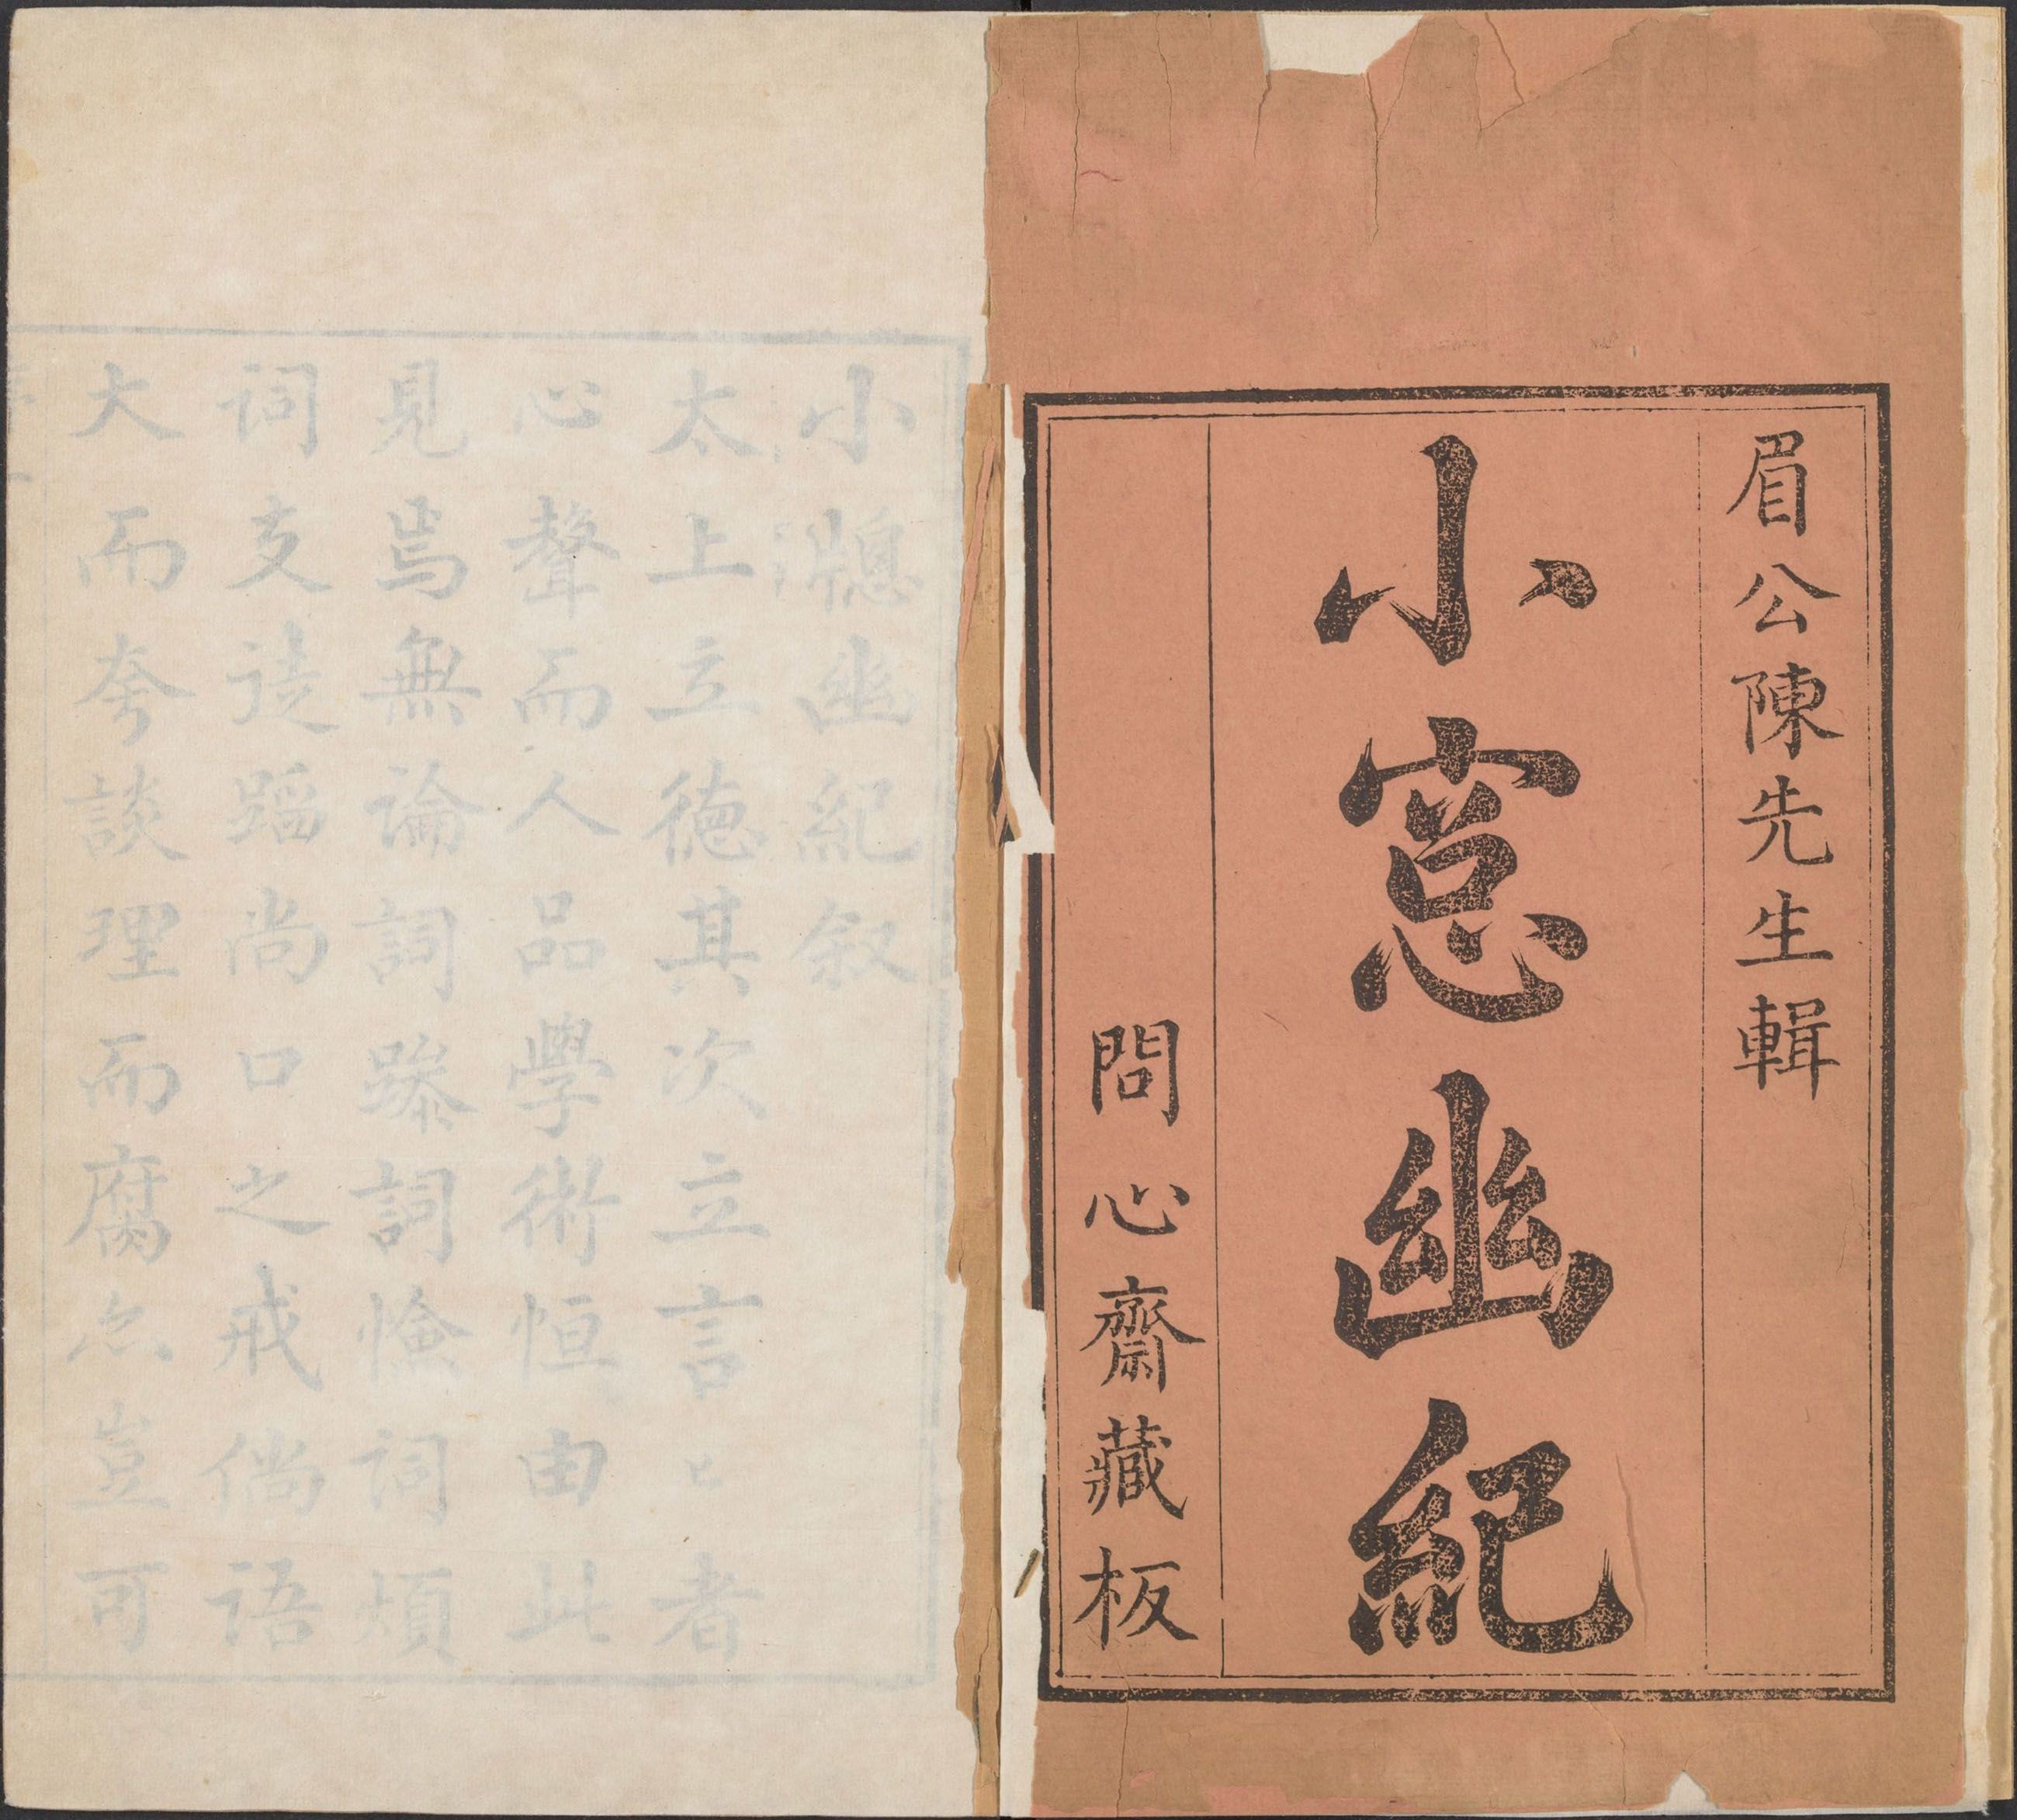 眉公陳先生輯
小窓幽紀
問心齋藏板
小牕幽紀叙
太上立德其次立言言者
心聲而人品學術恒由此
見焉無論詞躁詞憸詞煩
詞支徒蹈尚口之戒倘語
大而夸談理而腐亦豈可